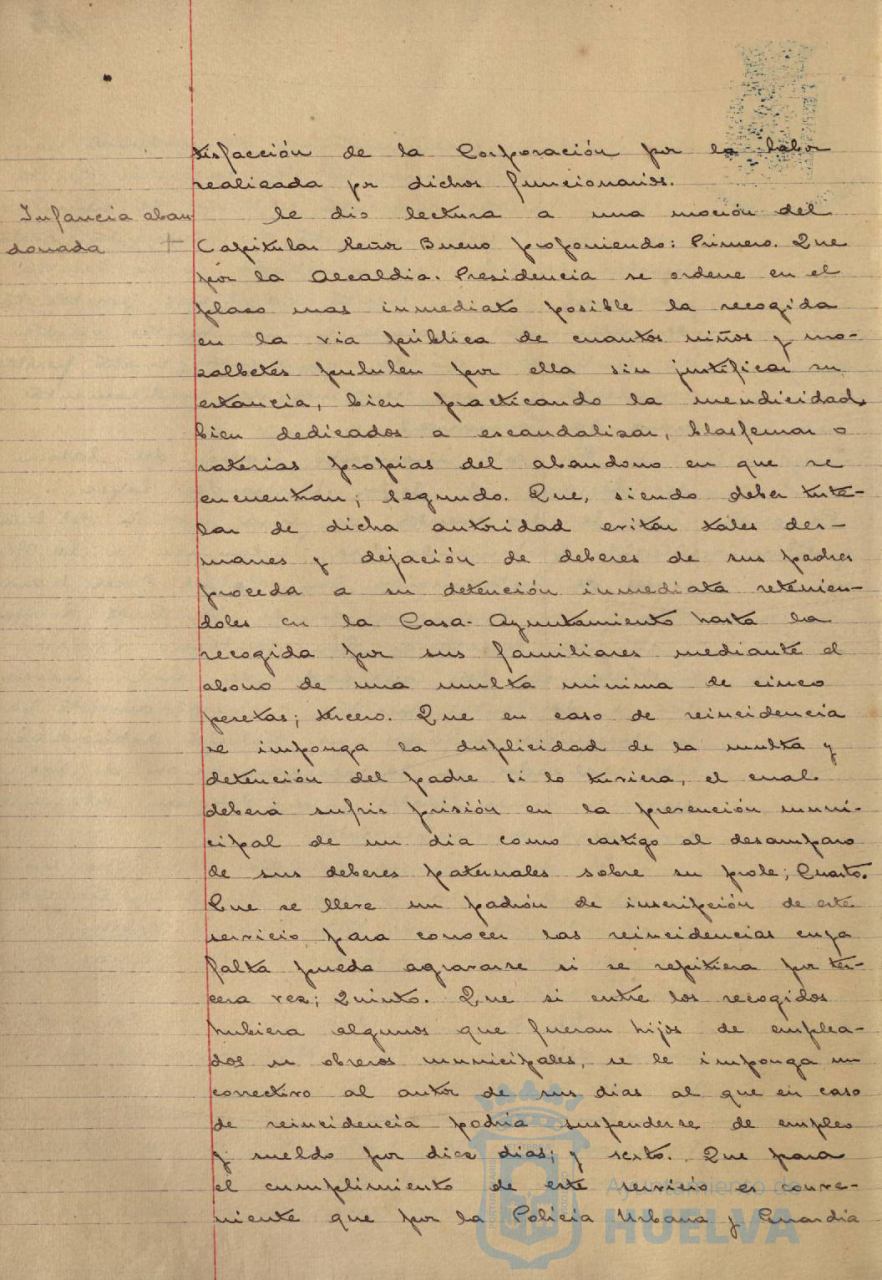 tisfacción de la Corporación por la labor
realizada pr dichos funcionarios.
Infancia aban
donada +
Se dio lectura a una moción del
Capitular Señor Bueno proponiendo: Primero. Que
por la Alcaldia. Presidencia se ordene en el
plaso mas inmediato posible la recogida
en la via pública de cuantos niños y mo-
zalbetes pululen por ella sin justificar su
estancia, bien practicando la mendicidad,
bien dedicados a escandalizar, blasfemar o
raterias propias del abandono en que se
encuentran; Segundo. Que, siendo deber tute-
lar de dicha autoridad evitar tales des-
manes y dejación de deberes de sus padres
proceda a su detención inmediata retenien-
doles en la Casa-Ayuntamiento hasta la
recogida por sus familiares mediante el
abono de una multa minima de cinco
pesetas; tercero. Que en caso de reincidencia
se imponga la duplicidad de la multa y
detención del padre si lo tuviera, el cual
deberá sufrir prisión en la prevención muni-
cipal de un dia como castigo al desamparo
de sus deberes paternales sobre su prole; Cuarto.
Que se lleve un padrón de inscripción de este
servicio para conocer las reincidencias cuya
falta pueda agravarse si se repitiera por ter-
cera vez; Quinto. Que si entre los recogidos
hubiera algunos que fueran hijos de emplea-
dos u obreros municipales, se le imponga un
correctivo al autor de sus dias al que en caso
de reincidencia podria suspenderse de empleo
y sueldo por diez dias; y sexto. Que para
el cumplimiento de este servicio es conve-
niente que por la Policia Urbana y Guardia
Ayuntamiento de
HUELVA